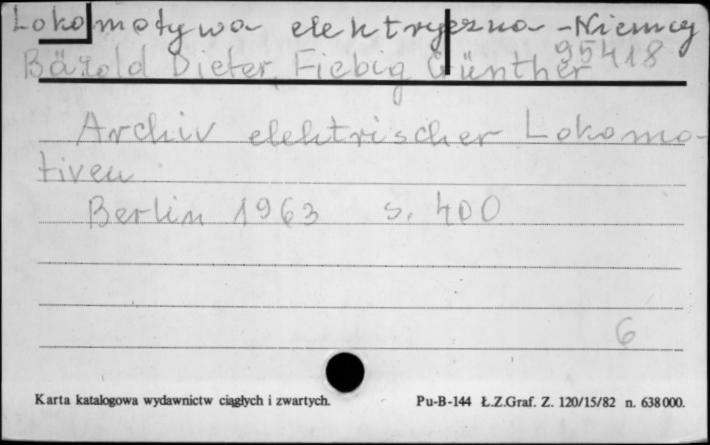 Lokomotywa elektryczna - Niemcy
95418
Bäzold Dieter, Fiebig Günther
Archiv elektrischer Lokomo-
tiven
Berlin 1963 s. 400
6
Karta katalogowa wydawnictw ciągłych i zwartych.
Pu-B-144 Ł.Z.Graf. Z. 120/15/82 n. 638000.